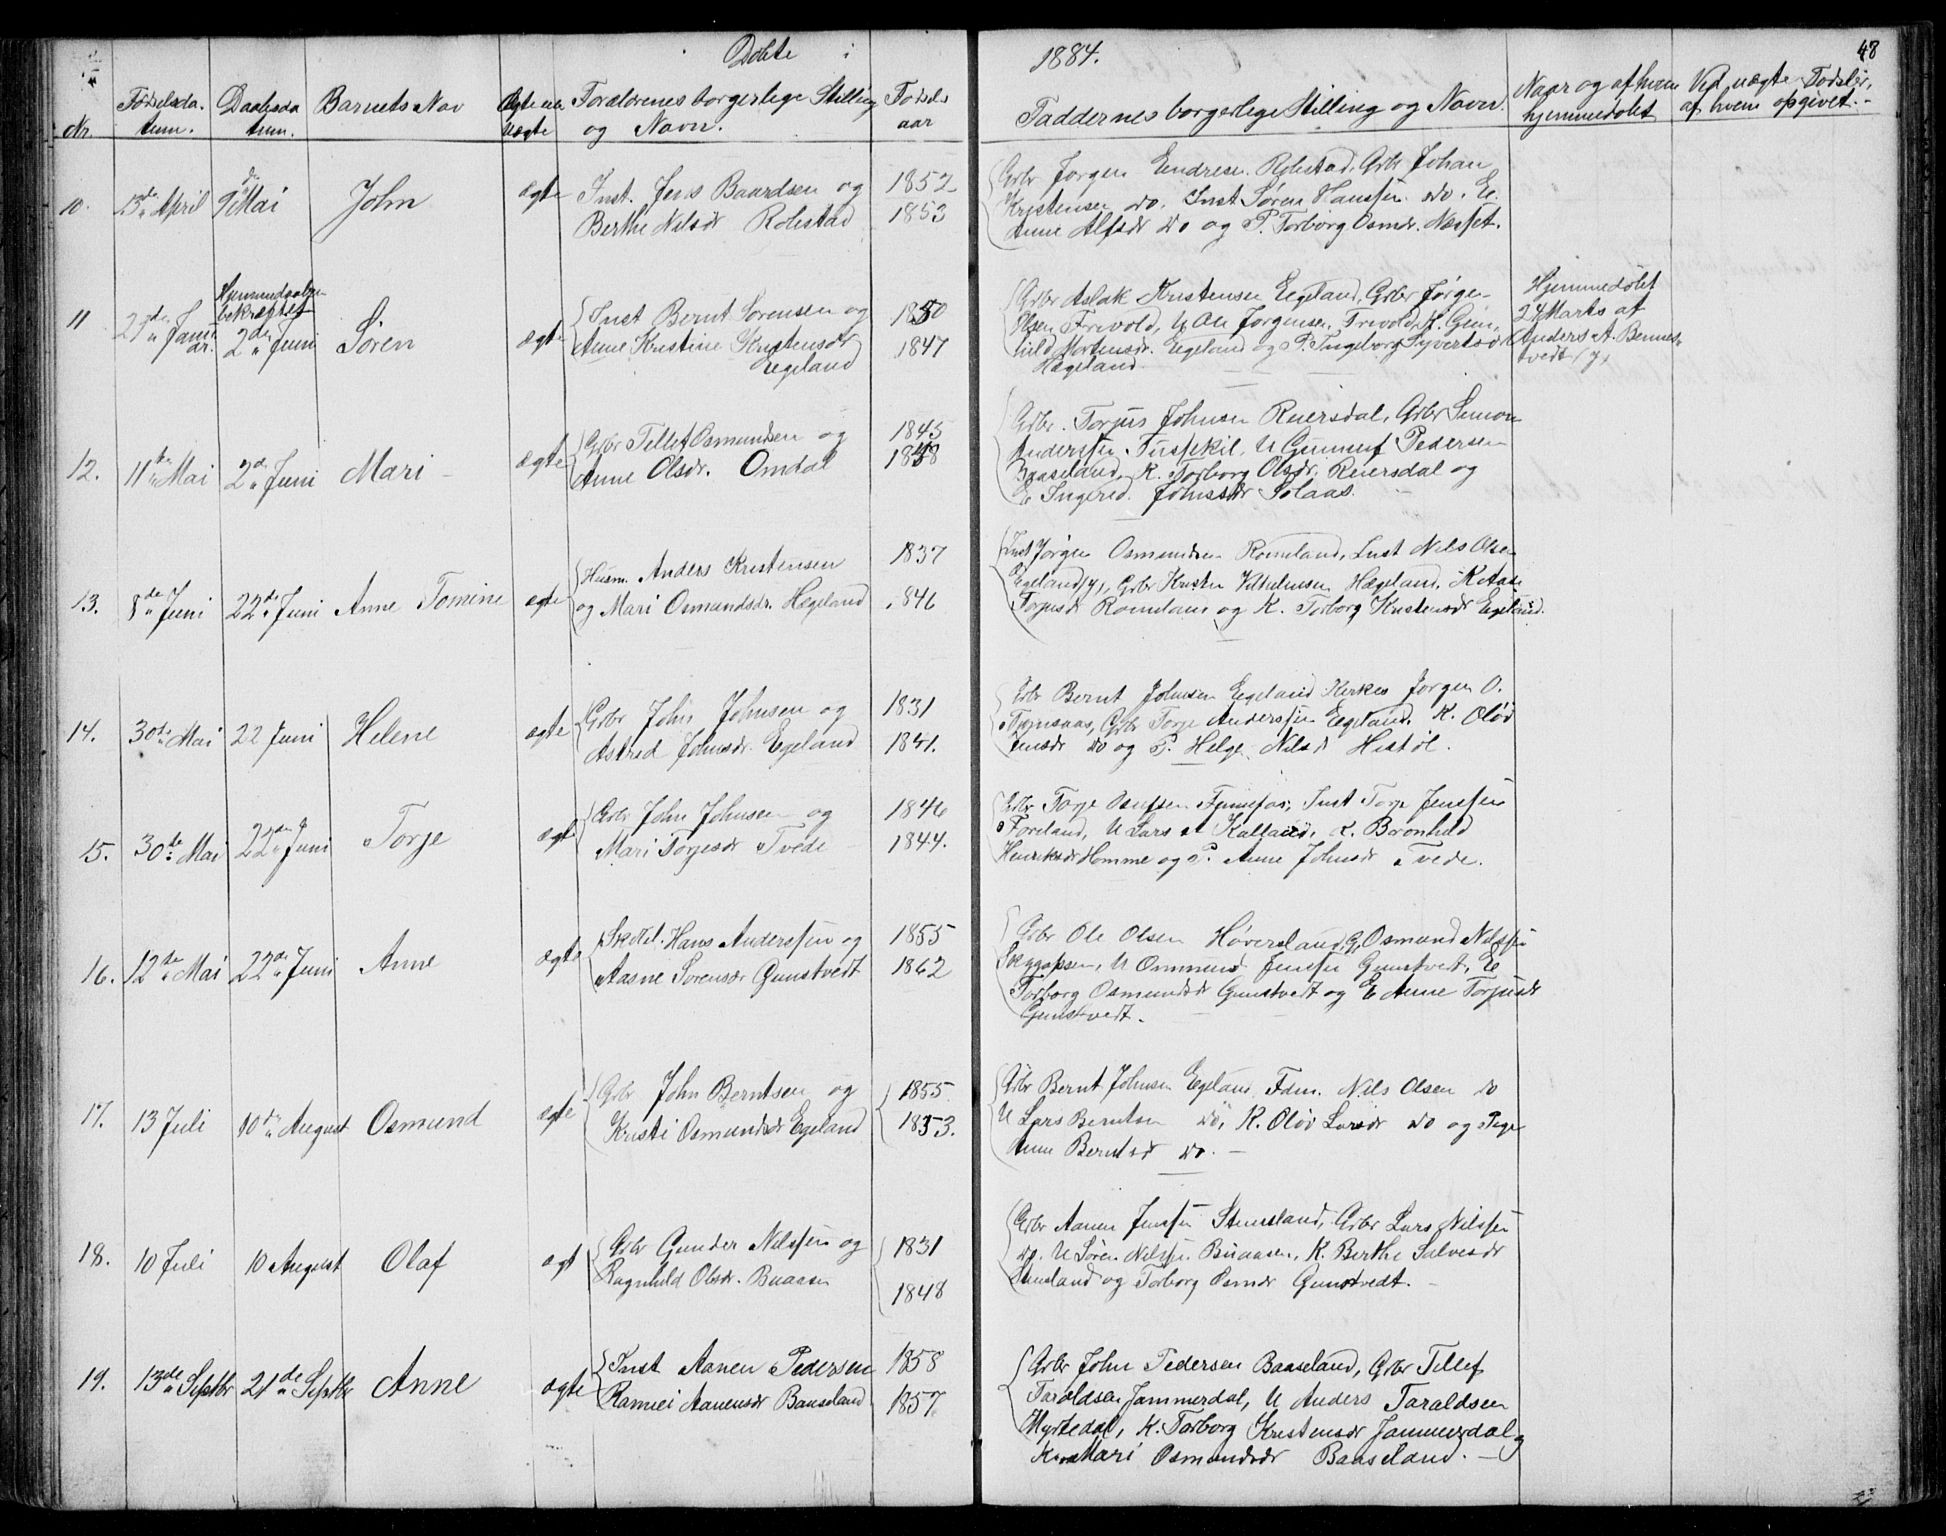 Døbte i 1884. 48
Nr. Fødselsda- Daabsda Barnets Nav Ægte el. Forældrenes borgerlige Stilling Fødsels Faddernes borgerlige Stilling og Navn. Naar og af hvem Ved uægte Fødsler,
tum. tum. uægte og Navn. aar hjemmedøbt af hvem opgivet.
10. 13de April 9de Mai John ægte Inst. Jens Baardsen og 1852
Berthe Nilsdr Robstad 1853
Grbr Jørgen Endresen Robstad, Grbr Johan
Kristensen do. Inst Søren Hanssen do. E.
Anne Alfsdr do og P. Torborg Osmdr. Næsset.
11 21de Januar. Hjemmedaaben
bekræftet
2den Juni Søren ægte Inst Bernt Sørensen og 1850
Anne Kristine Kristensdr 1847
Egeland
Grbr Aslak Kristensen Egeland, Grbr Jørgen
Olsen Frivold, U Ole Jørgensen Frivold, K. Gun-
hild Mortensdr. Egeland og P. Ingeborg Syvertsdr
Hægeland.
Hjemmedøbt
24 Marts af
Anders A. Bennes-
tvedt
12. 11te Mai 2den Juni Mari ægte Grbr Tellef Osmundsen og 1845
Anne Olsdr. Omdal 1848
Grbr. Torjus Johnsen Reiersdal, Grbr Simon
Anderssen Fusekil, U Gunneuf Pedersen
Baaseland, K. Torborg Olsdr. Reiersdal og
E Ingerid Johnsdr Solaas.
13. 8de Juni 22de Juni Anne Tomine ægte Husm. Anders Kristensen 1837
og Mari Osmundsdr. Hægeland 1846
Inst Jørgen Osmundsen Romeland, Inst Nils Olsen
Egeland, Grbr Kristen Vilhelmsen Hægeland, K Aase
Torjusdr Romeland og K. Torborg Kristensdr Egeland.
14. 30te Mai 22 Juni Helene ægte Grbr John Johnsen og 1831
Astrid Johnsdr. Egeland 1841.
Grbr Bernt Johnsen Egeland Kirkes Jørgen O.
Grbr Torje Anderssen Egeland, K. Oløv
Jensdr do og P. Helge Nilsdr Histøl.
15. 30te Mai 22de Juni Torje ægte Grbr John Johnsen og 1846
Mari Torjesdr Tvede 1844.
Grbr Torje Osufsen Fjunefos, Inst Torje Jenssen
Foreland, U Lars st Kalland, K. Brønhild
Henriksdr Homme og P. Anne Johnsdr Tvede.
16. 12te Mai 22de Juni Anne ægte Skoel. Hans Anderssen og 1855
Aasne Sørensdr Gunstvedt 1862
Grbr Ole Olsen Høversland, G Osmund Nilssen
Skeggassen, U Ommund Jenssen Gunstvedt, E
Torborg Osmundsdr Gunstvedt og E Anne Torjusdr
Gunstvedt.
17. 13 Juli 10de August Osmund ægte Grbr John Berntsen og 1855.
Kristi Osmundsdr Egeland 1853.
Grbr Bernt Johnsen Egeland, Fdm. Nils Olsen do
U Lars Berntsen do, K. Oløv Larsdr do og Pige
Anne Berntsdr do.
18. 10 Juli 10 August Olaf ægt Grbr Gunder Nilssen og 1831
Ragnhild Olsdr. Buaasen 1848
Grbr Aanen Jenssen Stensland, Grbr Lars Nilssen
do. U Søren Nilssen Buaasen, K. Berthe Salvesdr
Stensland og Torborg Osmdr Gunstvedt.
19. 13de Septbr 21de Septbr Anne ægte Inst Aanen Pedersen 1858
Ramiei Aanensdr Baaseland 1857.
Grbr John Pedersen Baaseland, Grbr Tellef
Taraldsen Jammerdal, U Anders Taraldsen
Myrtedal, K. Torborg Kristensdr Jammerdal og
Kone Mari Osmundsdr Baaseland.